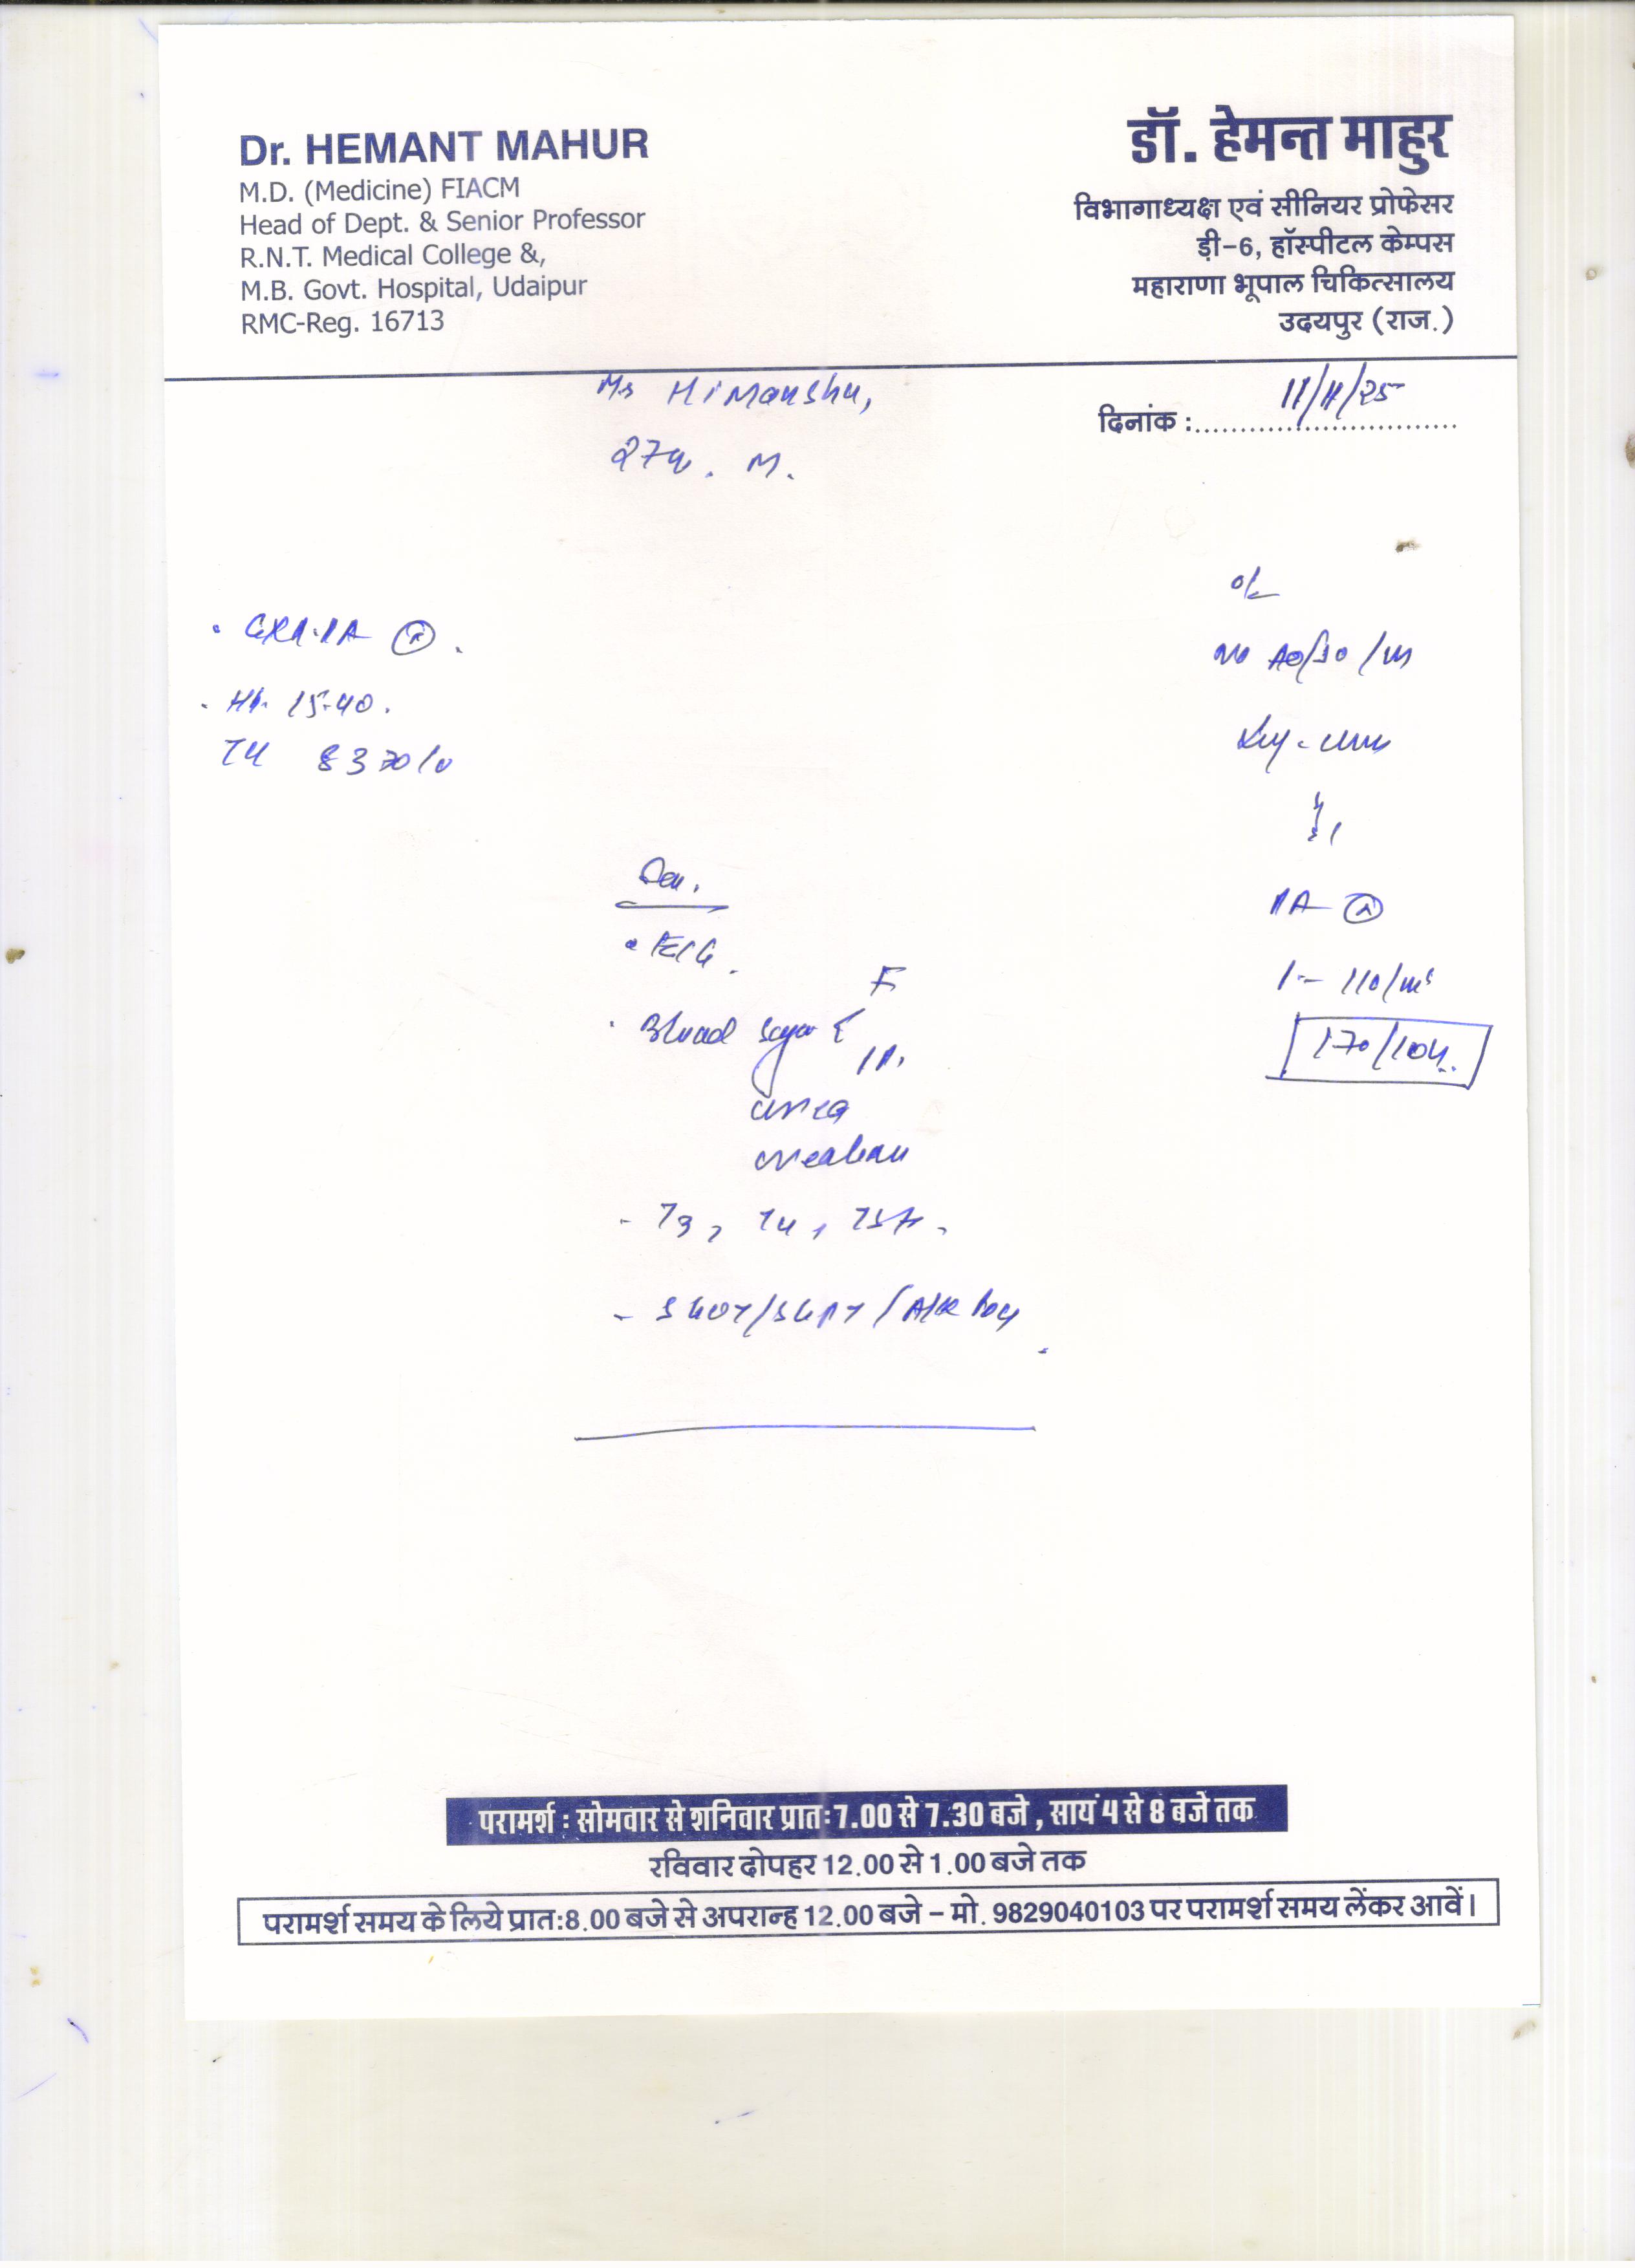 Dr. HEMANT MAHUR
M.D. (Medicine) FIACM
Head of Dept. & Senior Professor
R.N.T. Medical College &,
M.B. Govt. Hospital, Udaipur
RMC-Reg. 16713
डॉ. हेमन्त माहुर
विभागाध्यक्ष एवं सीनियर प्रोफेसर
डी-6, हॉस्पीटल केम्पस
महाराणा भूपाल चिकित्सालय
उदयपुर (राज.)
Mr Himanshu,
दिनांक : 11/11/25
27y. M.
O/E
CXR.PA Ⓝ.
Hb. 15.40.
PA Ⓝ
ECG.
110/m
F
Blood Sugar {
170/104
urea
creatinine
- T3, T4, TSH.
- SGOT/SGPT/
परामर्श : सोमवार से शनिवार प्रातः7.00 से 7.30 बजे , सायं 4 से 8 बजे तक
रविवार दोपहर 12.00 से 1.00 बजे तक
परामर्श समय के लिये प्रातः8.00 बजे से अपरान्ह 12.00 बजे – मो. 9829040103 पर परामर्श समय लेंकर आवें।